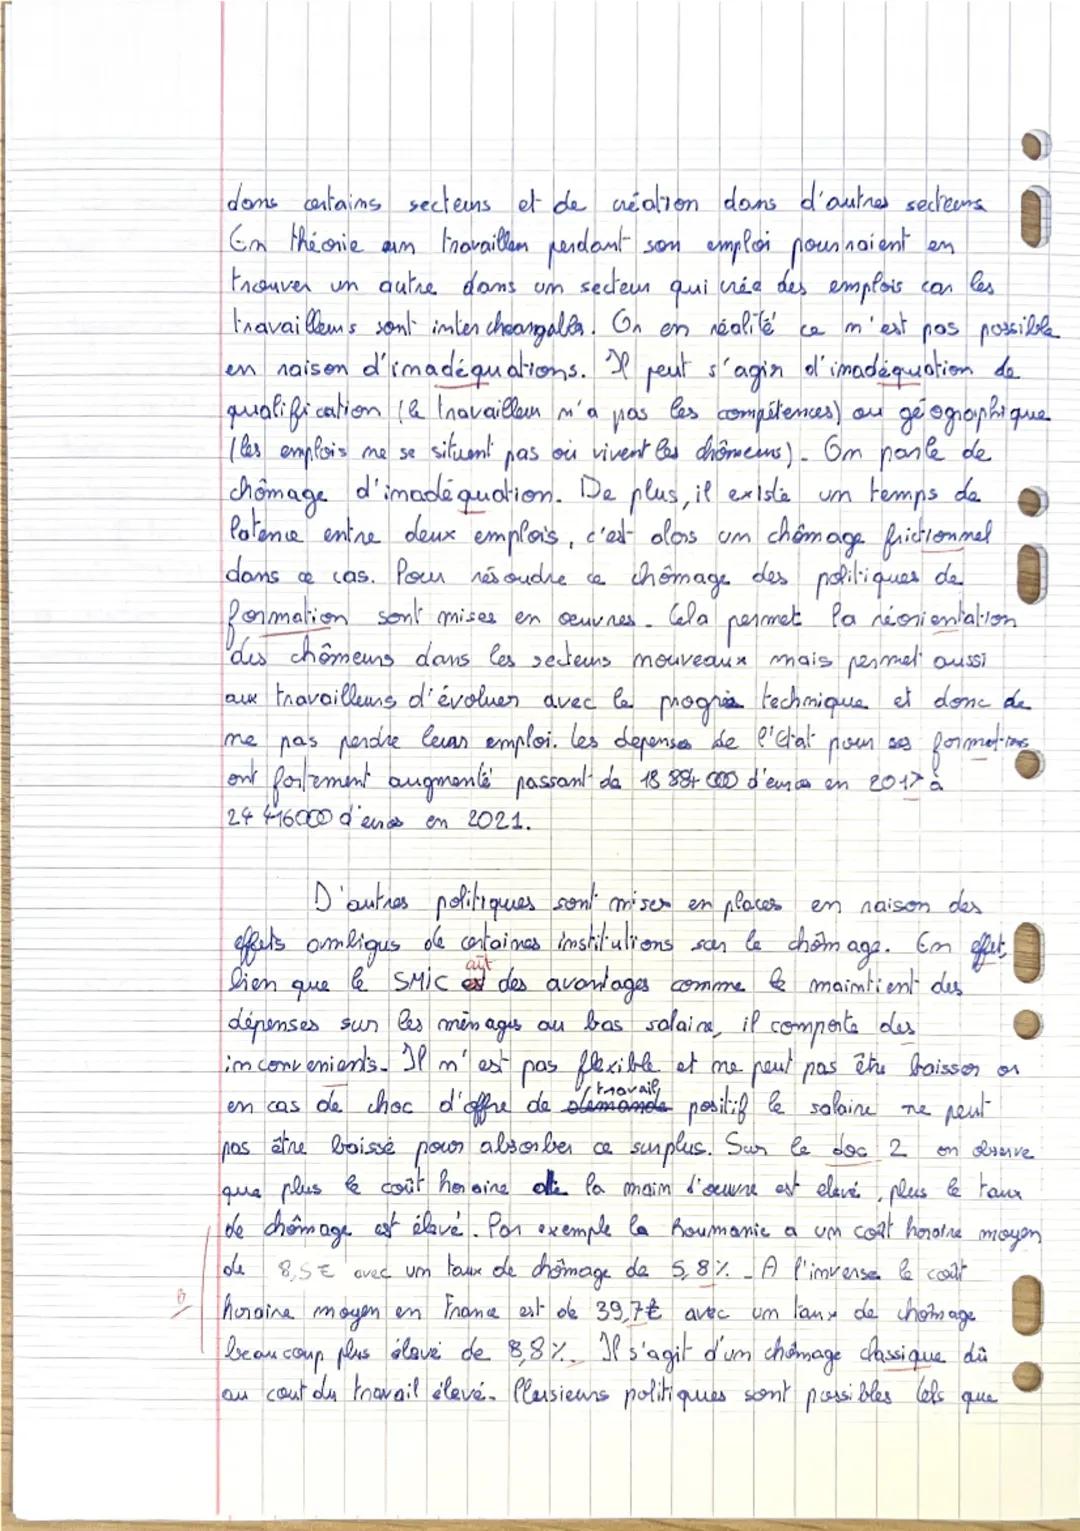 dans certains secteurs et de création dans d'autres secteurs
En théorie un travailleur perdant son emploi pourraient en
trouver un autre dans un secteur qui crée des emplois car les
travailleurs sont interchangables. Or en réalité ce n'est pas possible
en raison d'inadéquations. Il peut s'agir d'inadéquation de
qualification (le travailleur n'a pas les compétences) ou géographique
(les emplois ne se situent pas où vivent les chômeurs). On parle de
chômage d'inadéquation. De plus, il existe un temps de
latence entre deux emplois, c'est alors un chômage frictionnel
dans ce cas. Pour résoudre ce chômage des politiques de
formation sont mises en œuvres. Cela permet la réorientation
des chômeurs dans les secteurs nouveaux mais permet aussi
aux travailleurs d'évoluer avec le progrès technique et donc de
ne pas perdre leurs emploi. Les dépenses de l'Etat pour ses formations
ont fortement augmenté passant de 18 884 000 d'euros en 2017 à
24 416000 d'euros en 2021.
D'autres politiques sont mises en places en raison des
effets ambigus de certaines institutions sur le chômage. En effet,
bien que le SMIC est ait des avantages comme le maintient des
dépenses sur les ménages au bas salaire, il comporte des
inconvenients. Il n'est pas flexible et ne peut pas être baisser or
en cas de choc d'offre de demande travail positif le salaire ne peut
pas être baissé pour absorber ce surplus. Sur le doc 2 on observe
que plus le coût horaire de la main d'œuvre est élevé, plus le taux
de chômage est élevé. Par exemple la Roumanie a un coût horaire moyen
de 8,5€ avec un taux de chômage de 5,8%. A l'inverse le coût
horaire moyen en France est de 39,7€ avec un taux de chômage
beaucoup plus élevé de 8,8%. Il s'agit d'un chômage classique dû
au cout du travail élevé. Plusieurs politiques sont possibles tels que